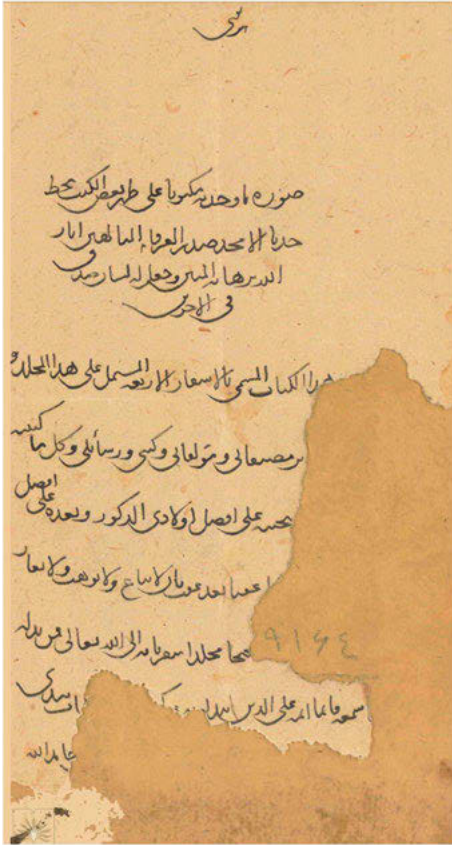 صورة ما وجدته مكتوبا على ظهر بعض الكتب بخط
جدنا الامجد صدر العرفاء المتالهين انار
الله برهانه المبين وجعل له لسان صدق
في الاخرين
هذا الكتاب المسمى بالاسفار الاربعة المشتمل على هذا المجلد
من مصنفاتي و مؤلفاتي وكتبي ورسائلي وكل ما كتبته
على افضل اولادي الذكور وبعده على افضل
عقبا بعد عقب بان لا يباع ولا يوهب ولا يعار
مخلدا الى الله تعالى فمن بدله
٩١٦٤
سمعه فانما اثمه على الذين يبدلونه بيدي